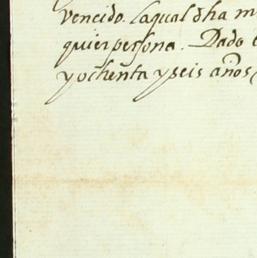 vencido. Laqual dha m
quier persona. Dado e
y ochenta y seis años